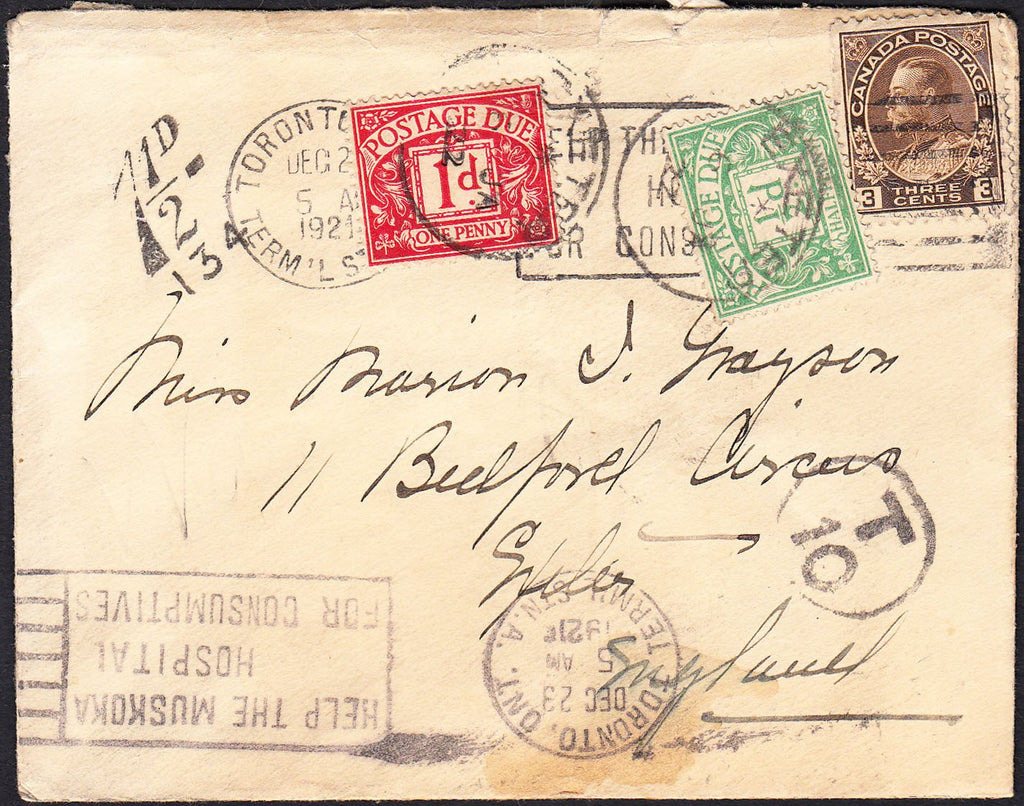 CANADA POSTAGE
3 THREE CENTS 3
POSTAGE DUE
1d.
ONE PENNY
POSTAGE DUE
½D
HALFPENNY
1½D
134
TORONTO
DEC 2
5 A
1921
TERM'L ST
HELP THE
FOR CONS
Miss Marion J. Grayson
11 Bedford Circus
Exeter
England
T
10
TORONTO, ONT.
DEC 23
5 AM
1921
TERM'L STN. A.
HELP THE MUSKOKA
HOSPITAL
FOR CONSUMPTIVES